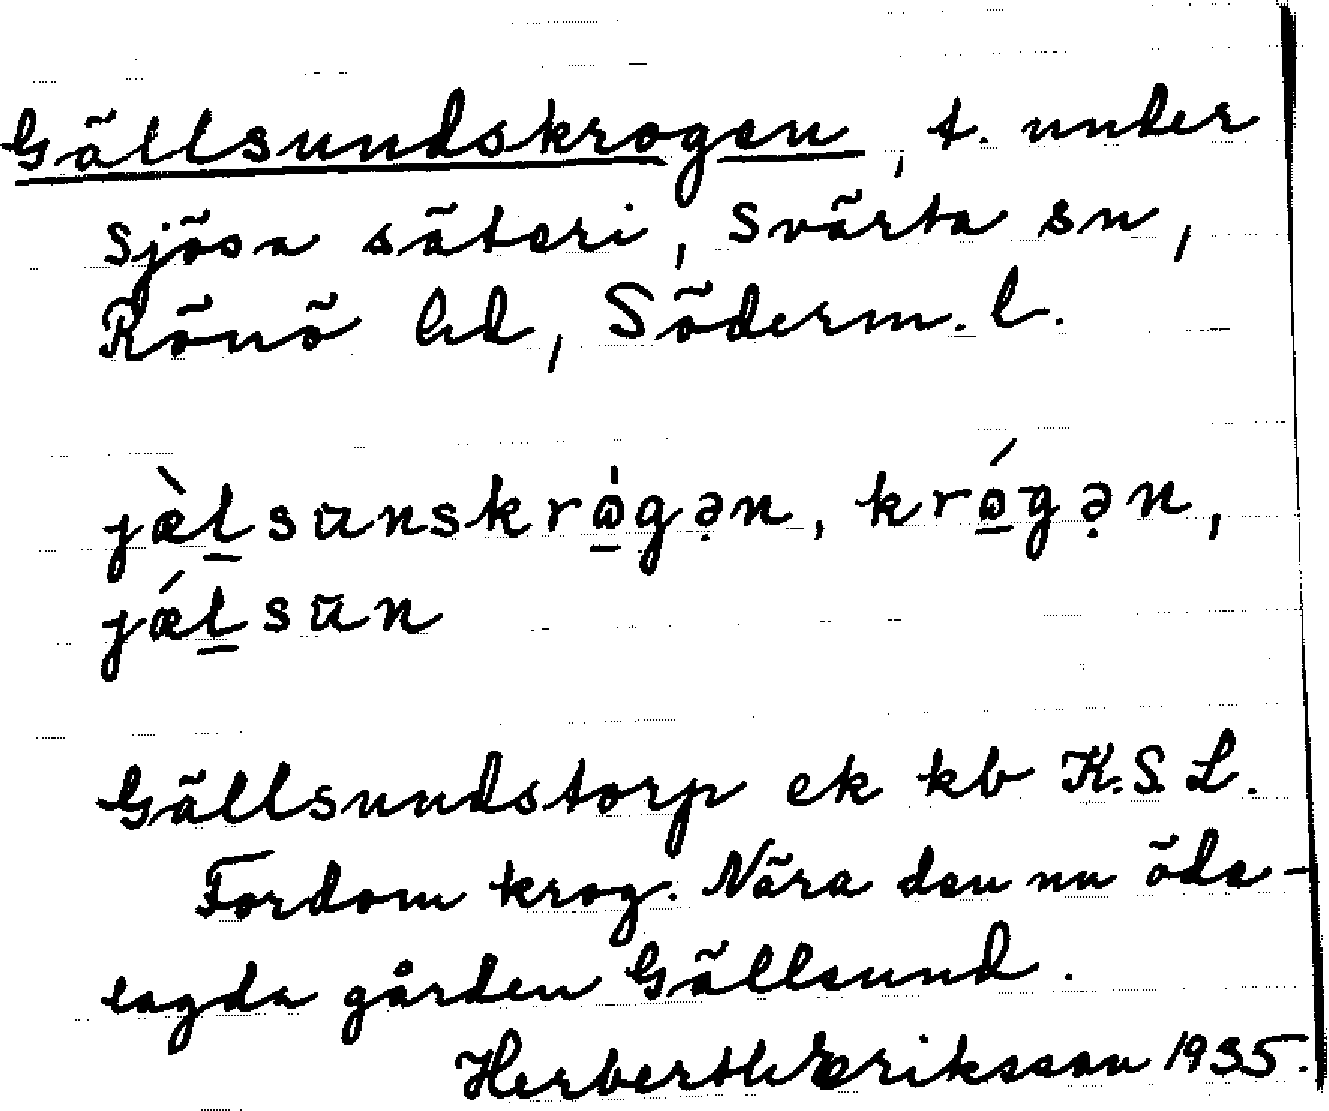 Gällsundskrogen, t. under
Sjösa säteri, Svärta sn,
Rönö hd, Söderm. l.
jæ̀l̲sūnskrω̲̍gə̣n, krώ̲gə̣n,
jǽl̲sūn
Gällsundstorp ek kb K.S.L.
Fordom krog. Nära den nu öde-
lagda gården Gällsund.
Herbert Eriksson 1935.